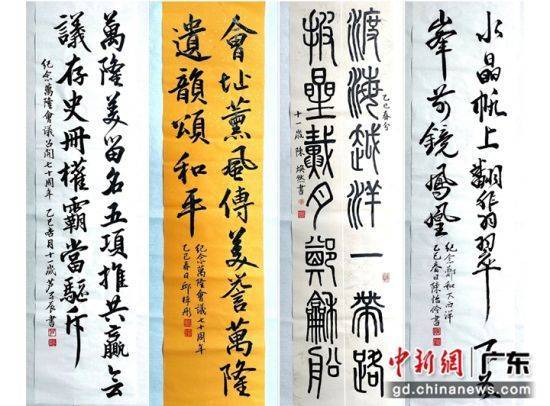 萬隆美留名五項推共贏會
議存史冊權霸當驅斥
紀念萬隆會議召開七十周年
乙巳杏月十一歲
會址薰風傳美譽萬隆
遺韻頌和平
紀念萬隆會議七十周年
乙巳春日邱梓彤
渡海越洋一帶路
披星戴月鄭龢船
乙巳春分
十一歲 陳煥然書
水晶帆上翻翡翠
峯前鏡鳳凰
紀念鄭和下西洋
乙巳春日陳怡伶書
中新網 广东
gd.chinanews.com